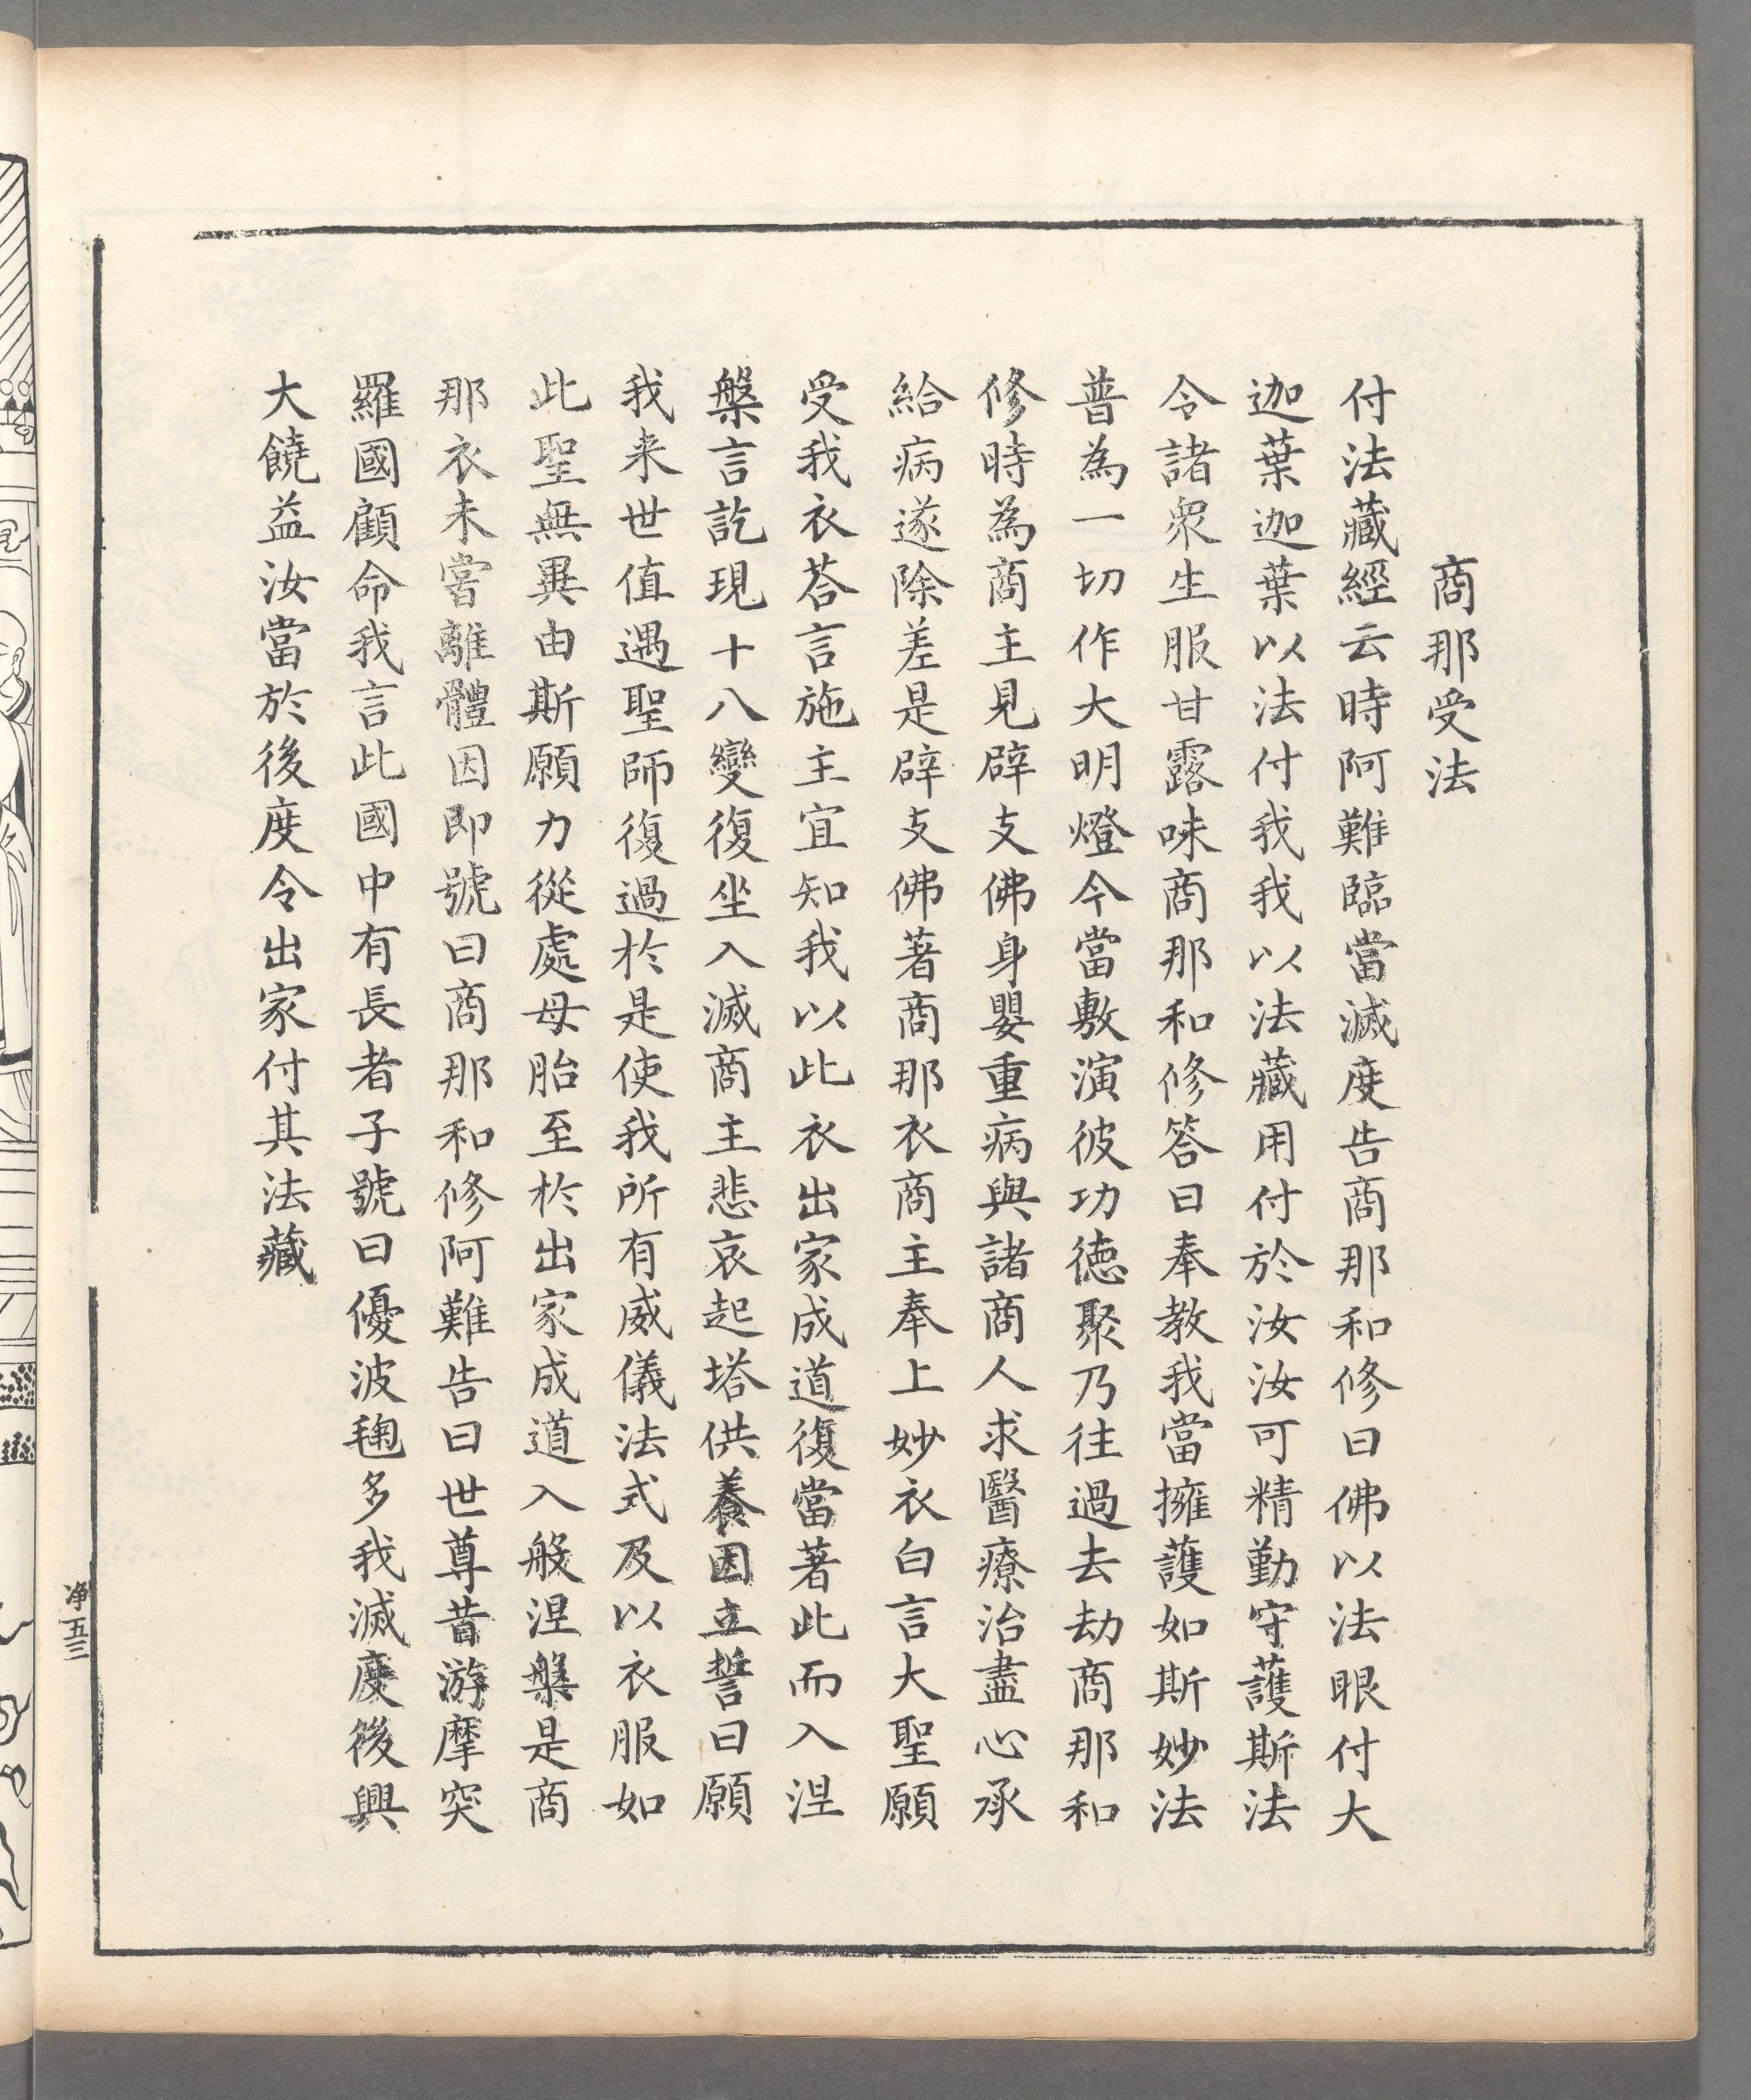 商那受法
付法藏經云時阿難臨當滅度告商那和修曰佛以法眼付大
迦葉迦葉以法付我我以法藏用付於汝汝可精勤守護斯法
令諸衆生服甘露味商那和修答曰奉教我當擁護如斯妙法
普為一切作大明燈今當敷演彼功德聚乃往過去劫商那和
修時為商主見辟支佛身嬰重病與諸商人求醫療治盡心承
給病遂除差是辟支佛著商那衣商主奉上妙衣白言大聖願
受我衣荅言施主宜知我以此衣出家成道復當著此而入涅
槃言訖現十八變復坐入滅商主悲哀起塔供養因立誓曰願
我来世值遇聖師復過於是使我所有威儀法式及以衣服如
此聖無異由斯願力從處母胎至於出家成道入般涅槃是商
那衣未嘗離體因即號曰商那和修阿難告曰世尊昔游摩突
羅國顧命我言此國中有長者子號曰優波毱多我滅度後興
大饒益汝當於後度令出家付其法藏
净五三